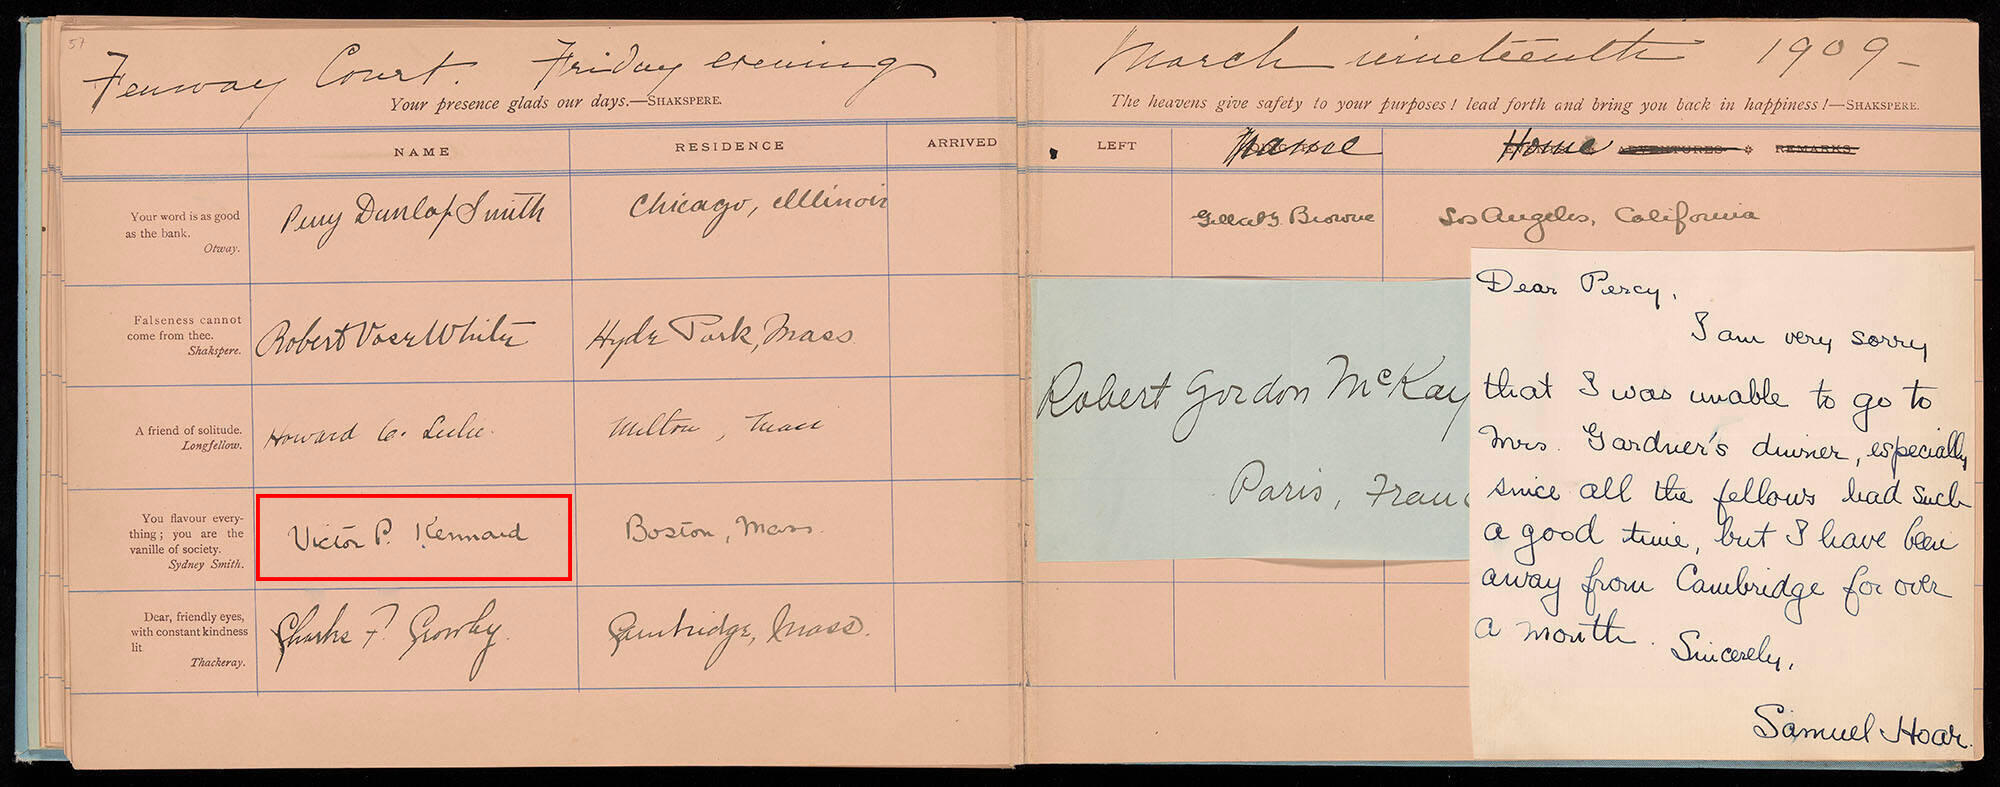 57
Fenway Court. Friday evening
Your presence glads our days.—SHAKSPERE.
NAME RESIDENCE ARRIVED
Your word is as good
as the bank.
Otway.
Perry Dunlap Smith Chicago, Illinois
Falseness cannot
come from thee.
Shakspere.
Robert Vose White Hyde Park, Mass.
A friend of solitude.
Longfellow.
Howard C. Leslie. Milton, Mass
You flavour every-
thing; you are the
vanille of society.
Sydney Smith.
Victor P. Kennard Boston, Mass.
Dear, friendly eyes,
with constant kindness
lit
Thackeray.
Charles F. Crowley. Cambridge, Mass.
March nineteenth 1909 —
The heavens give safety to your purposes! lead forth and bring you back in happiness!—SHAKSPERE.
LEFT Name Home ADVENTURES & REMARKS
Browne Los Angeles, California
Robert Gordon McKay
Paris, Franc
Dear Percy,
I am very sorry
that I was unable to go to
Mrs. Gardner's dinner, especially
since all the fellows had such
a good time, but I have been
away from Cambridge for over
a month.
Sincerely,
Samuel Hoar.